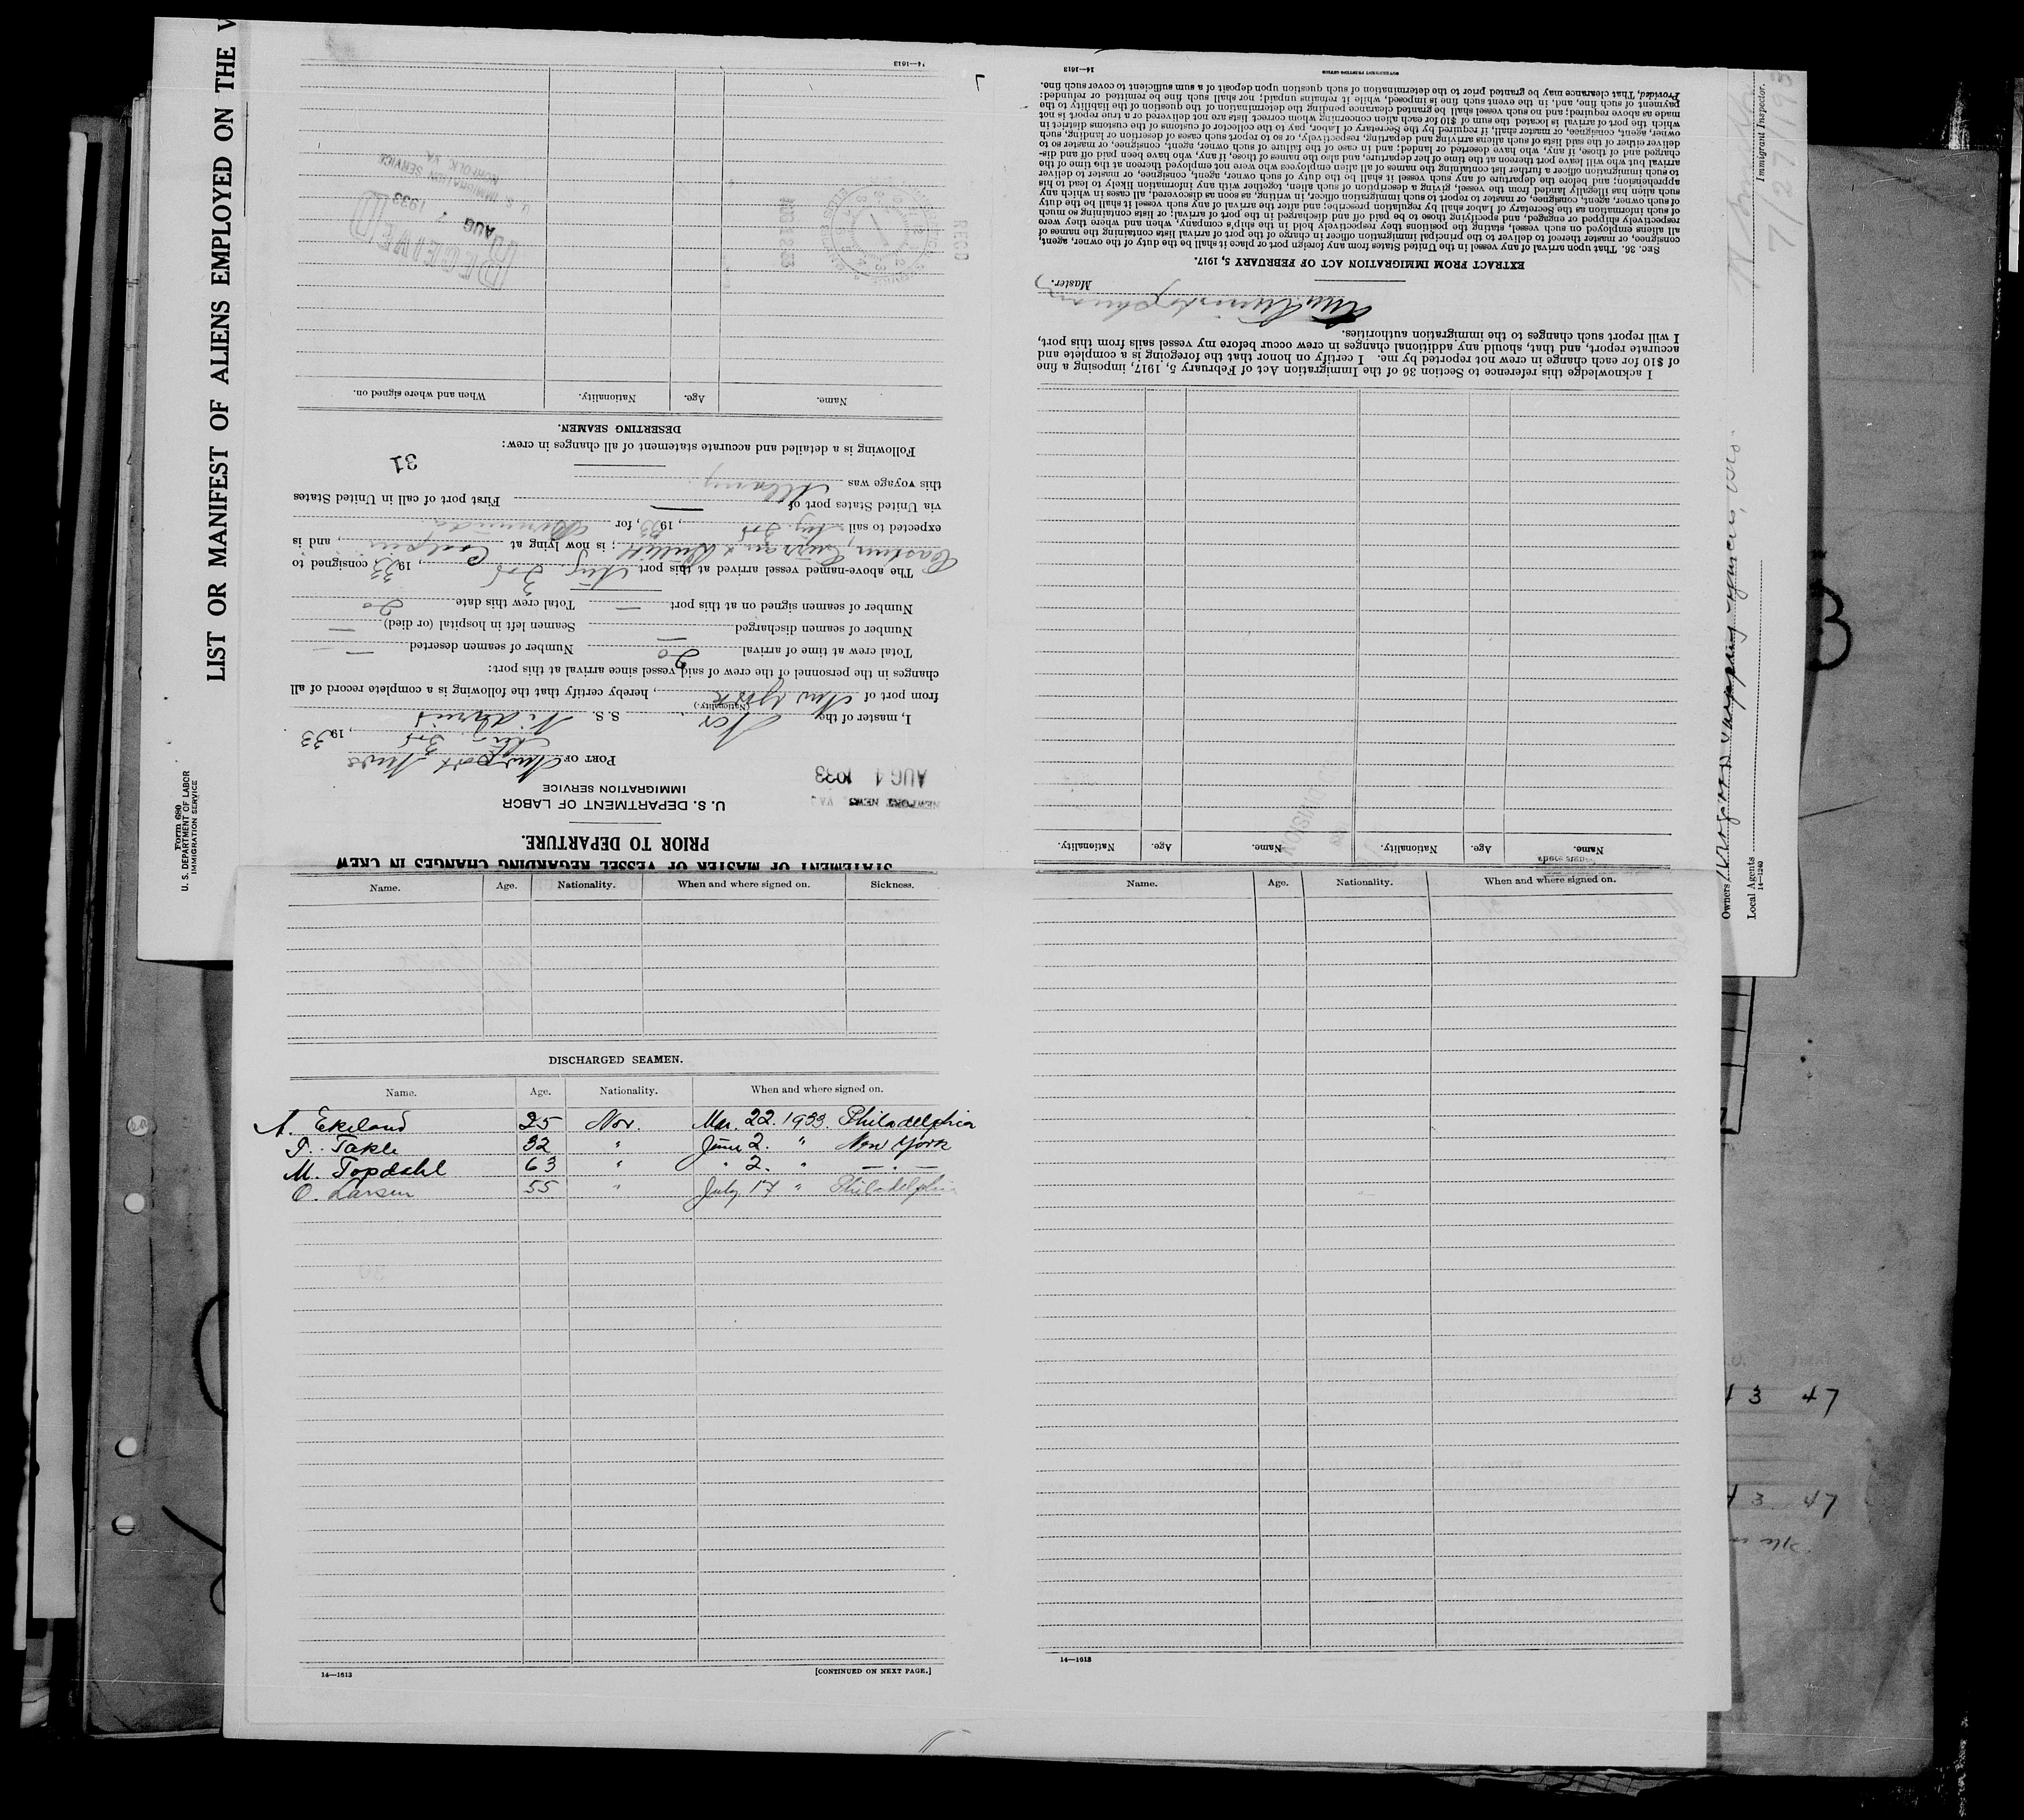 LIST OR MANIFEST OF ALIENS EMPLOYED ON THE V
Form 680
U. S. DEPARTMENT OF LABOR
IMMIGRATION SERVICE
STATEMENT OF MASTER OF VESSEL REGARDING CHANGES IN CREW
PRIOR TO DEPARTURE.
U. S. DEPARTMENT OF LABOR
IMMIGRATION SERVICE
NEWPORT NEWS, VA.
AUG 4 1933
PORT OF Newport News
Aug. 3rd, 1933
I, master of the Nor S. S. Nidarnes
(Nationality.)
from port of New York, hereby certify that the following is a complete record of all
changes in the personnel of the crew of said vessel since arrival at this port:
Total crew at time of arrival 20 Number of seamen deserted —
Number of seamen discharged — Seamen left in hospital (or died) —
Number of seamen signed on at this port — Total crew this date 20
The above-named vessel arrived at this port Aug 3rd, 1933 consigned to
; is now lying at Coalpier, and is
expected to sail Aug. 3rd, 1933, for Bermuda
via United States port of — First port of call in United States
this voyage was Albany.
31
Following is a detailed and accurate statement of all changes in crew:
DESERTING SEAMEN.
Name. Age. Nationality. When and where signed on.
RECEIVED
AUG 7 1933
U. S. IMMIGRATION SERVICE
NORFOLK, VA.
REC'D
14—1613
Name. Age. Nationality. Name. Age. Nationality.
I acknowledge this reference to Section 36 of the Immigration Act of February 5, 1917, imposing a fine
of $10 for each change in crew not reported by me. I certify on honor that the foregoing is a complete and
accurate report, and that, should any additional changes in crew occur before my vessel sails from this port,
I will report such changes to the immigration authorities.
Master.
EXTRACT FROM IMMIGRATION ACT OF FEBRUARY 5, 1917.
SEC. 36. That upon arrival of any vessel in the United States from any foreign port or place it shall be the duty of the owner, agent,
consignee, or master thereof to deliver to the principal immigration officer in charge of the port of arrival lists containing the names of
all aliens employed on such vessel, stating the positions they respectively hold in the ship's company, when and where they were
respectively shipped or engaged, and specifying those to be paid off and discharged in the port of arrival; or lists containing so much
of such information as the Secretary of Labor shall by regulation prescribe; and after the arrival of any such vessel it shall be the duty
of such owner, agent, consignee, or master to report to such immigration officer, in writing, as soon as discovered, all cases in which any
such alien has illegally landed from the vessel, giving a description of such alien, together with any information likely to lead to his
apprehension; and before the departure of any such vessel it shall be the duty of such owner, agent, consignee, or master to deliver
to such immigration officer a further list containing the names of all alien employees who were not employed thereon at the time of the
arrival but who will leave port thereon at the time of her departure, and also the names of those, if any, who have been paid off and dis-
charged and of those, if any, who have deserted or landed; and in case of the failure of such owner, agent, consignee, or master so to
deliver either of the said lists of such aliens arriving and departing, respectively, or so to report such cases of desertion or landing, such
owner, agent, consignee, or master shall, if required by the Secretary of Labor, pay to the collector of customs of the customs district in
which the port of arrival is located the sum of $10 for each alien concerning whom correct lists are not delivered or a true report is not
made as above required; and no such vessel shall be granted clearance pending the determination of the question of the liability to the
payment of such fine, and, in the event such fine is imposed, while it remains unpaid; nor shall such fine be remitted or refunded:
Provided, That clearance may be granted prior to the determination of such question upon deposit of a sum sufficient to cover such fine.
14—1613
GOVERNMENT PRINTING OFFICE
Immigrant Inspector.
7/27/193
Owners
Local Agents
14—1240
Name. Age. Nationality. When and where signed on. Sickness.
DISCHARGED SEAMEN.
Name. Age. Nationality. When and where signed on.
A. Ekeland 25 Nor. Mar. 22. 1933. Philadelphia
T. Takle 32 " June 2. " New York
M. Topdahl 63 " " 2. " — . —
O. Larsen 55 " July 17 " Philadelphia
14—1613
[CONTINUED ON NEXT PAGE.]
Name. Age. Nationality. When and where signed on.
14—1613
3 47
3 47